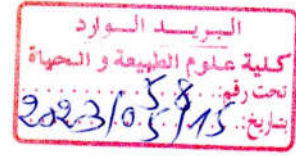 البريد الوارد
كلية علوم الطبيعة و الحياة
تحت رقم: 58
بتاريخ: 2023/05/15